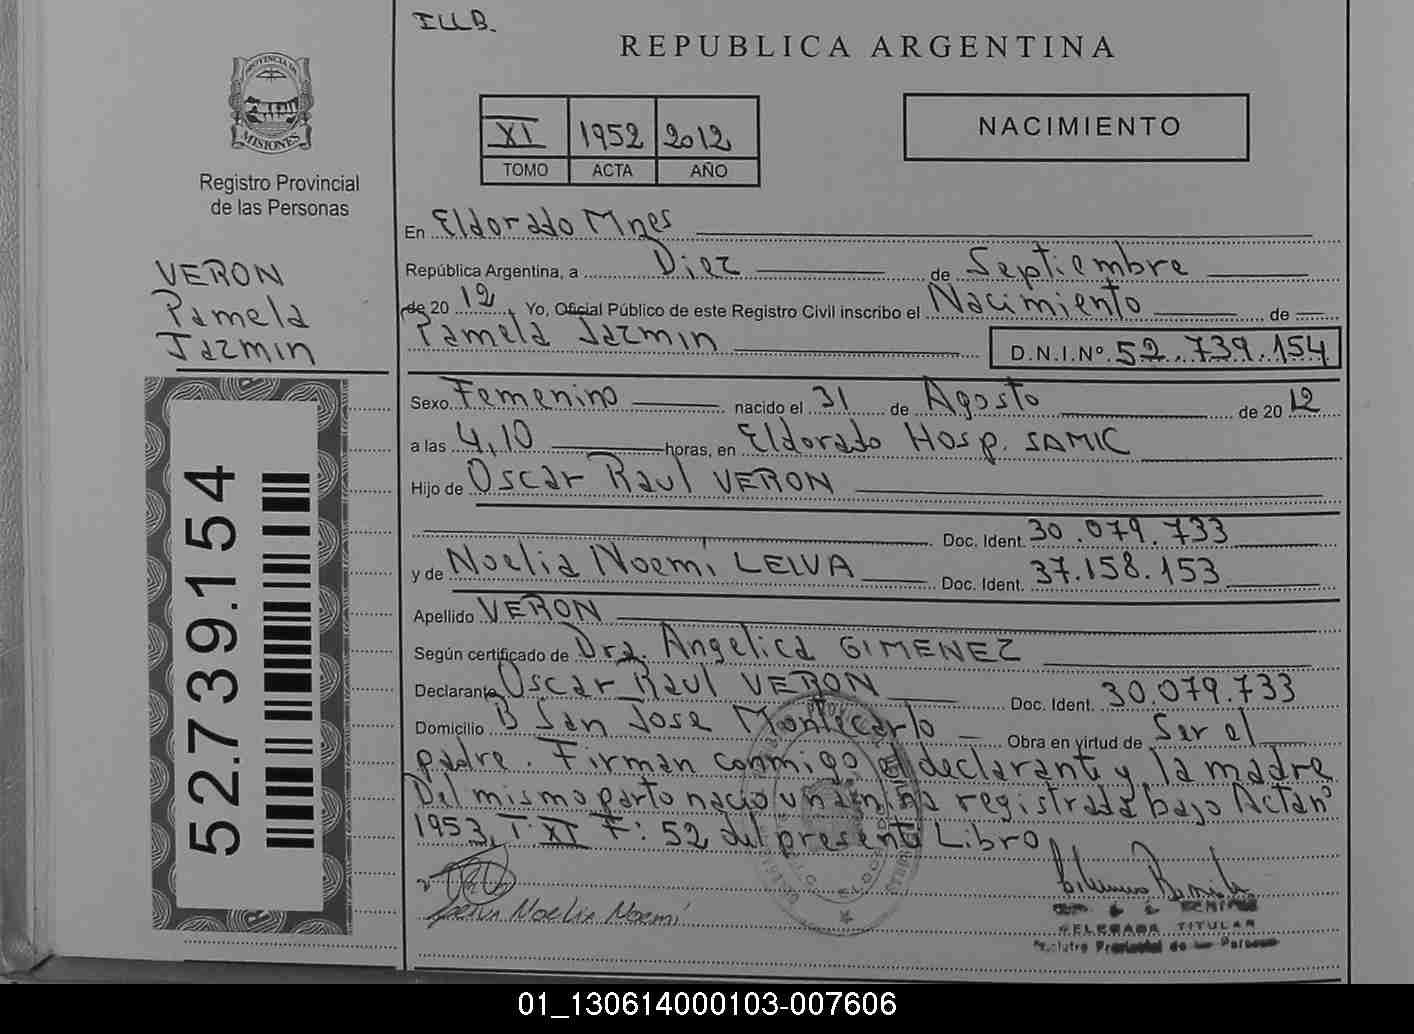 ILLB.
REPUBLICA ARGENTINA
PROVINCIA DE
MISIONES
Registro Provincial
de las Personas
XI 1952 2012
TOMO ACTA AÑO
NACIMIENTO
VERON
Pamela
Jazmin
52.739.154
En Eldorado Mnes
República Argentina, a Diez de Septiembre
de 20 12, Yo, Oficial Público de este Registro Civil inscribo el Nacimiento de
Pamela Jazmin D.N.I.Nº 52.739.154
Sexo Femenino nacido el 31 de Agosto de 20 12
a las 4,10 horas, en Eldorado Hosp. SAMIC
Hijo de Oscar Raul VERON
Doc. Ident. 30.079.733
y de Noelia Noemí LEIVA Doc. Ident. 37.158.153
Apellido VERON
Según certificado de Dra. Angelica GIMENEZ
Declarante Oscar Raul VERON Doc. Ident. 30.079.733
Domicilio B San Jose Montecarlo Obra en virtud de Ser el
padre. Firman conmigo el declarante y la madre
Del mismo parto nacio una niña registrada bajo Acta nº
1953, T: XI F: 52 del presente Libro
Leiva Noelia Noemí
DELEGADA TITULAR
Registro Provincial de las Personas
01_130614000103-007606